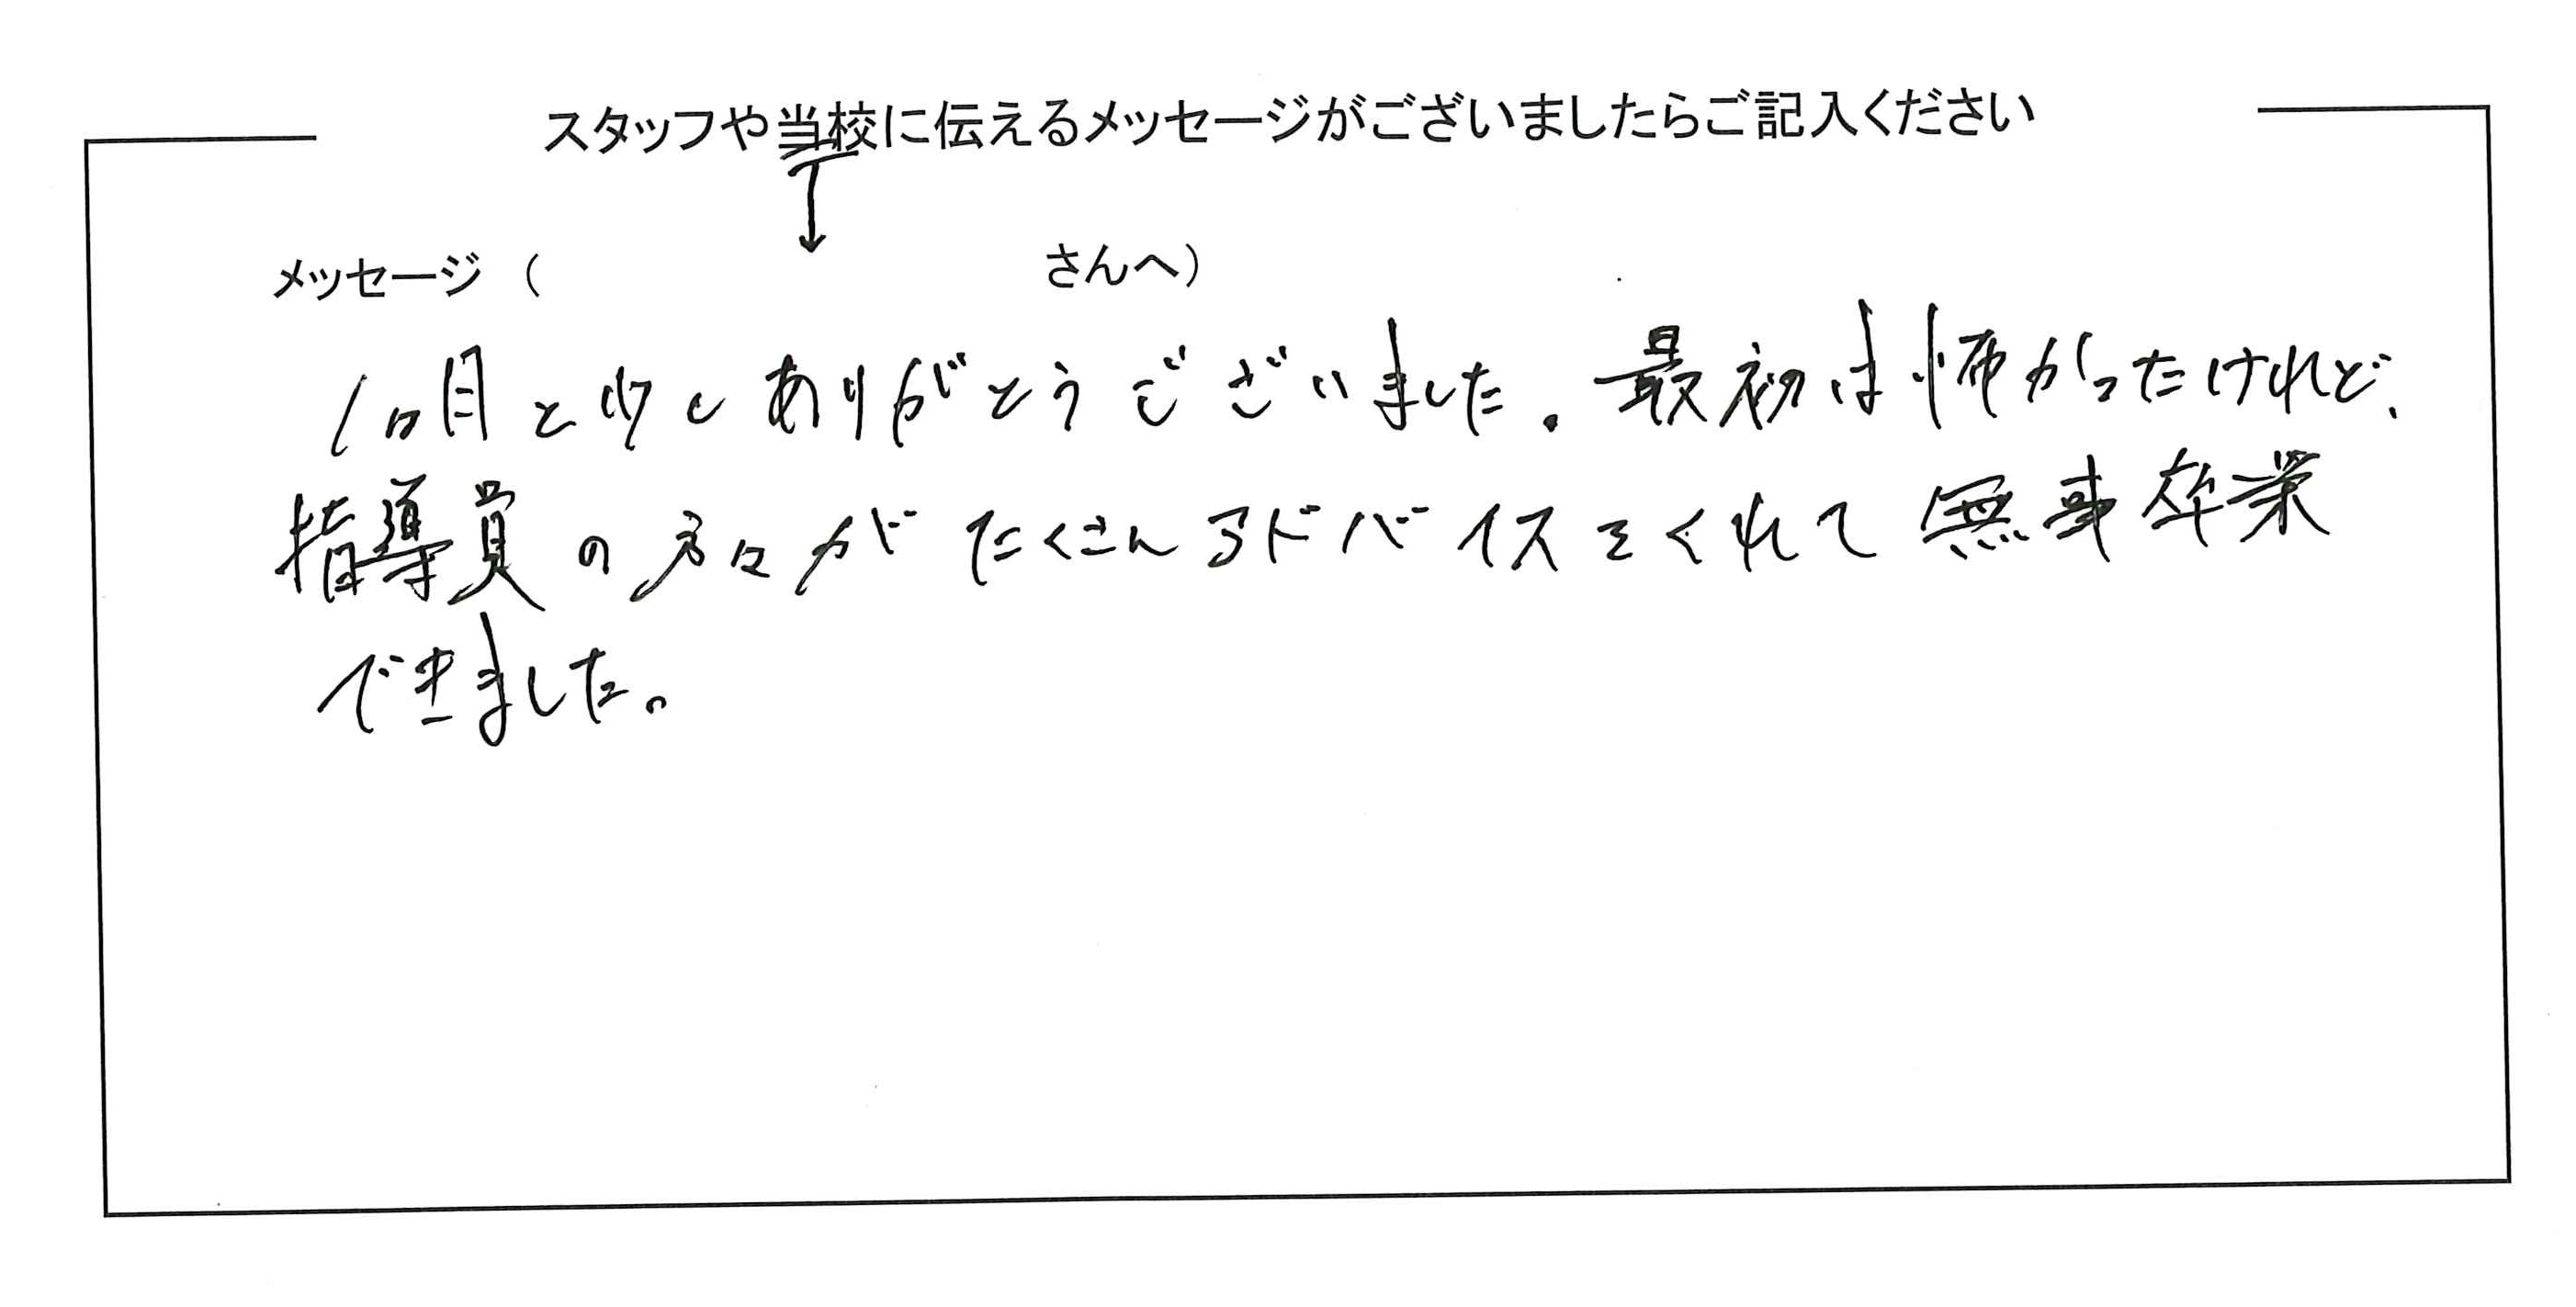 スタッフや当校に伝えるメッセージがございましたらご記入ください
メッセージ（　　　　　さんへ）
1ヶ月と少しありがとうございました。最初は怖かったけれど、
指導員の方々がたくさんアドバイスをくれて無事卒業
できました。